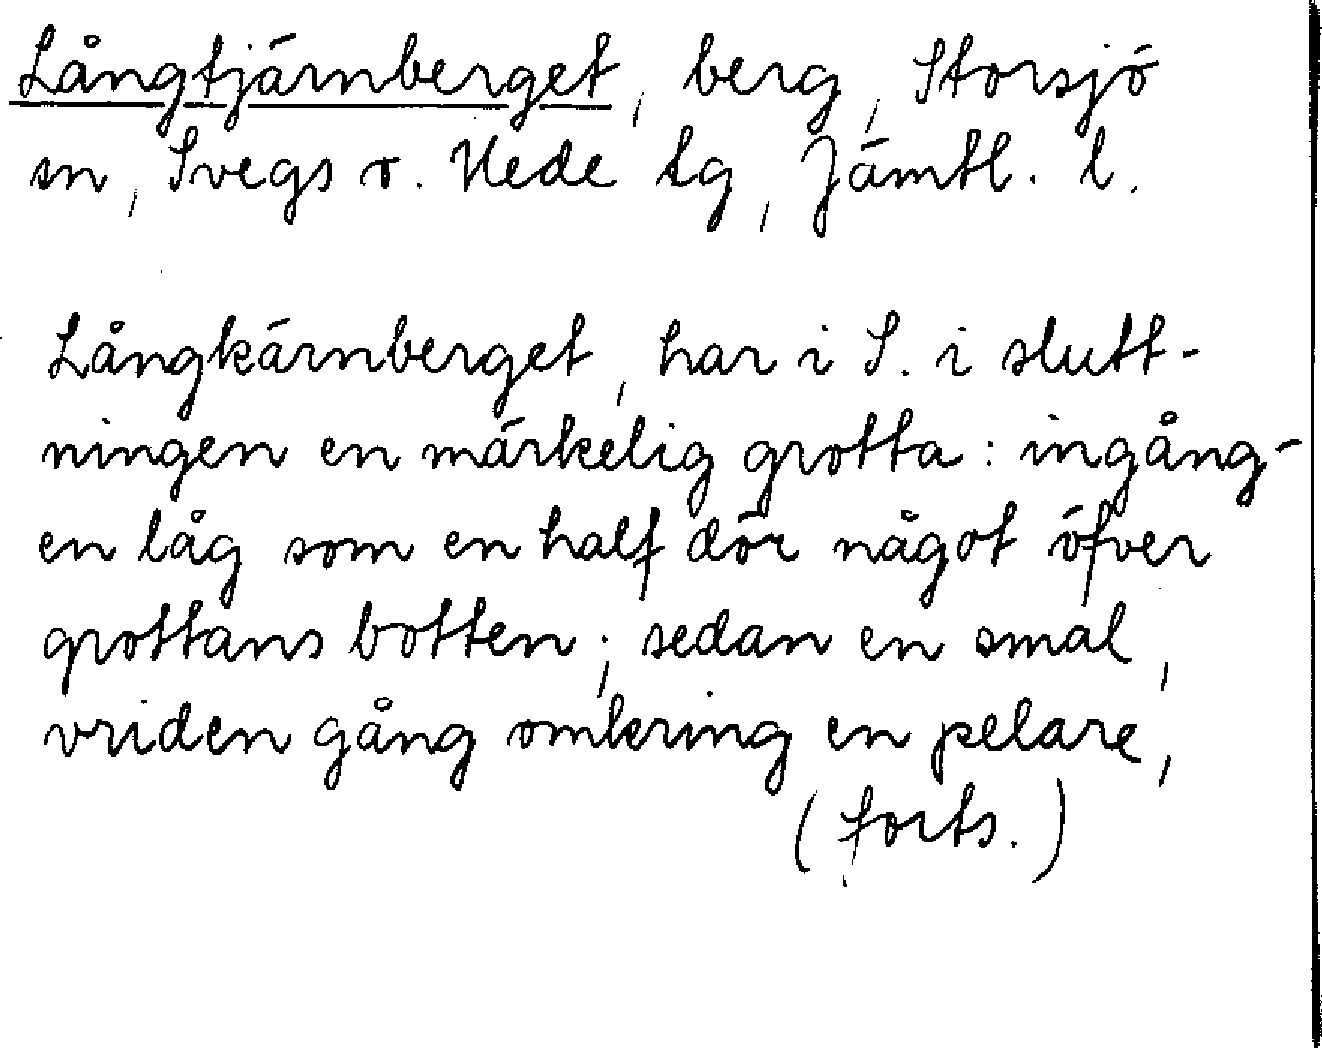 Långtjärnberget, berg, Storsjö
sn, Svegs o. Hede tg, Jämtl. l.
Långkärnberget, har i S. i slutt-
ningen en märkelig grotta: ingång-
en låg som en half dör något öfver
grottans botten; sedan en smal,
vriden gång omkring en pelare,
(forts.)